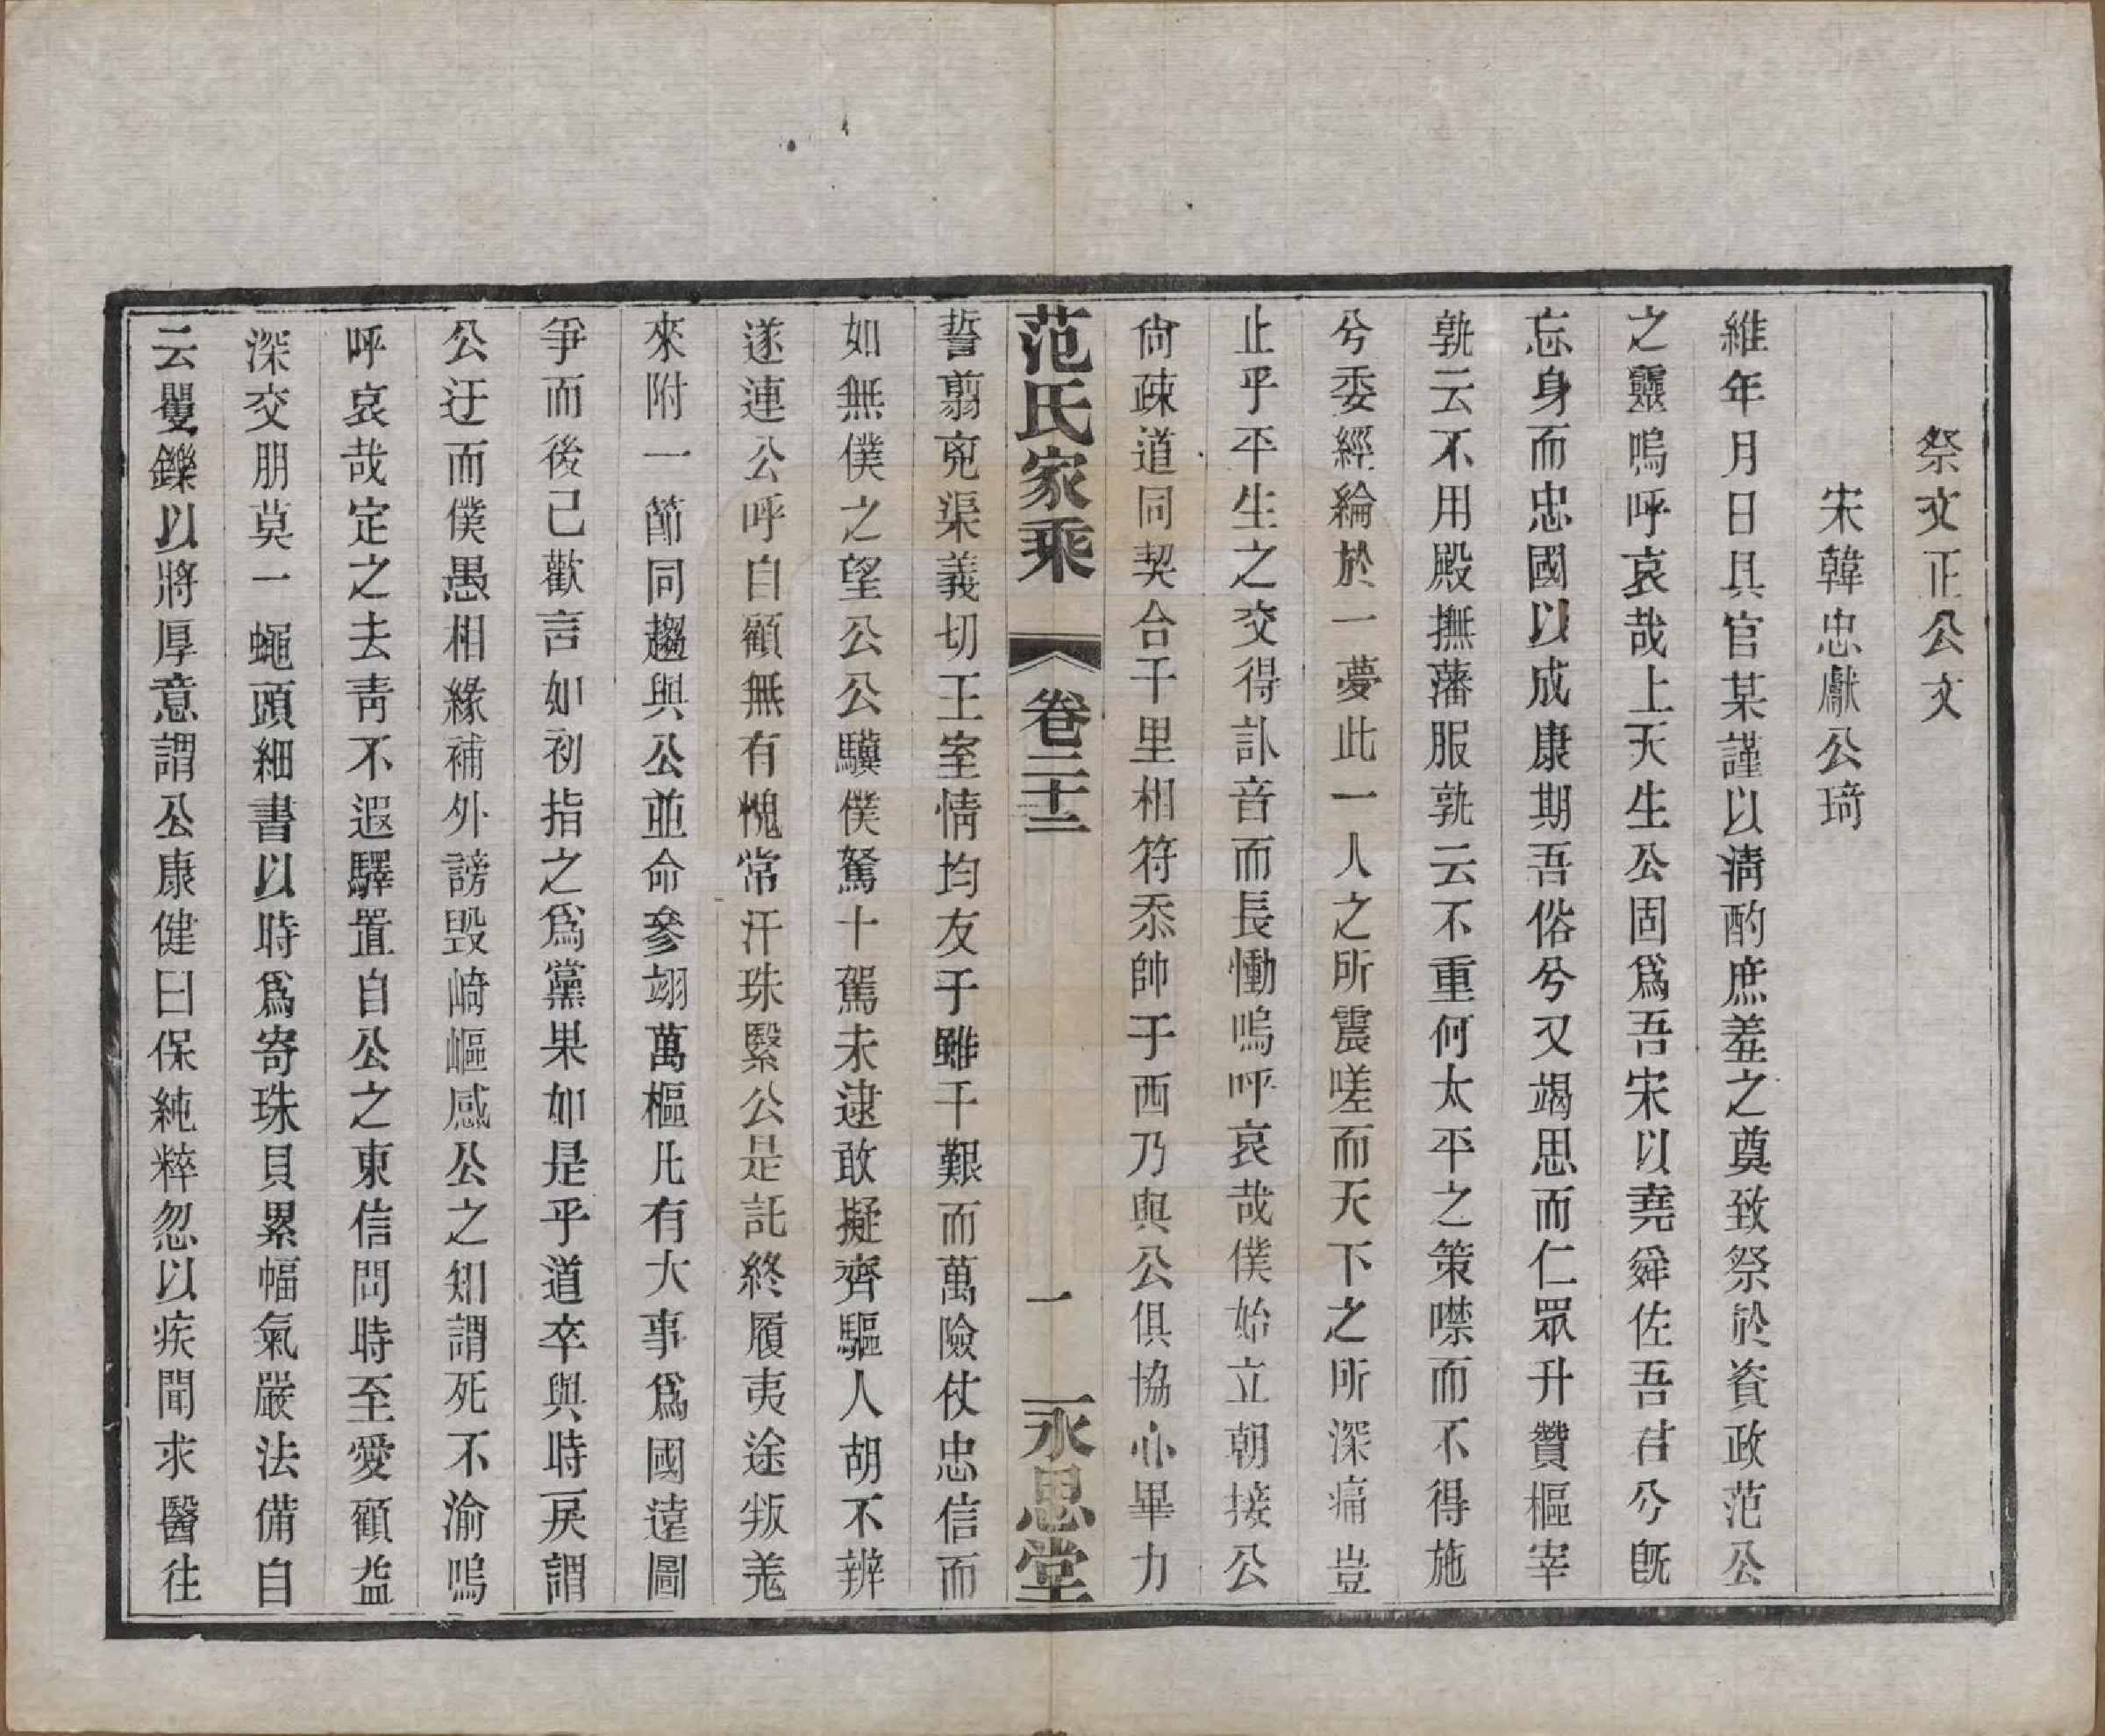 祭文正公文
宋韓忠獻公琦
維年月日具官某謹以淸酌庶羞之奠致祭於資政范公
之靈嗚呼哀哉上天生公固爲吾宋以堯舜佐吾君兮旣
忘身而忠國以成康期吾俗兮又竭思而仁眾升贊樞宰
孰云不用殿撫藩服孰云不重何太平之策噤而不得施
兮委經綸於一夢此一人之所震嗟而天下之所深痛豈
止乎平生之交得訃音而長慟嗚呼哀哉僕始立朝接公
尙疎道同契合千里相符忝帥于西乃與公俱協心畢力
范氏家乘 卷二十二 一 永思堂
誓翦兇渠義切王室情均友于雖千艱而萬險仗忠信而
如無僕之望公公驥僕駑十駕未逮敢擬齊驅人胡不辨
遂連公呼自顧無有愧常汗珠緊公是託終履夷途叛羌
來附一節同趨與公並命參翊萬樞凡有大事爲國遠圖
爭而後己歡言如初指之爲黨果如是乎道卒與時戾謂
公迂而僕愚相緣補外謗毀崎嶇感公之知謂死不渝嗚
呼哀哉定之去靑不遐驛置自公之東信問時至愛顧益
深交朋莫一蠅頭細書以時爲寄珠貝累幅氣嚴法備自
云矍鑠以將厚意謂公康健曰保純粹忽以疾聞求醫往